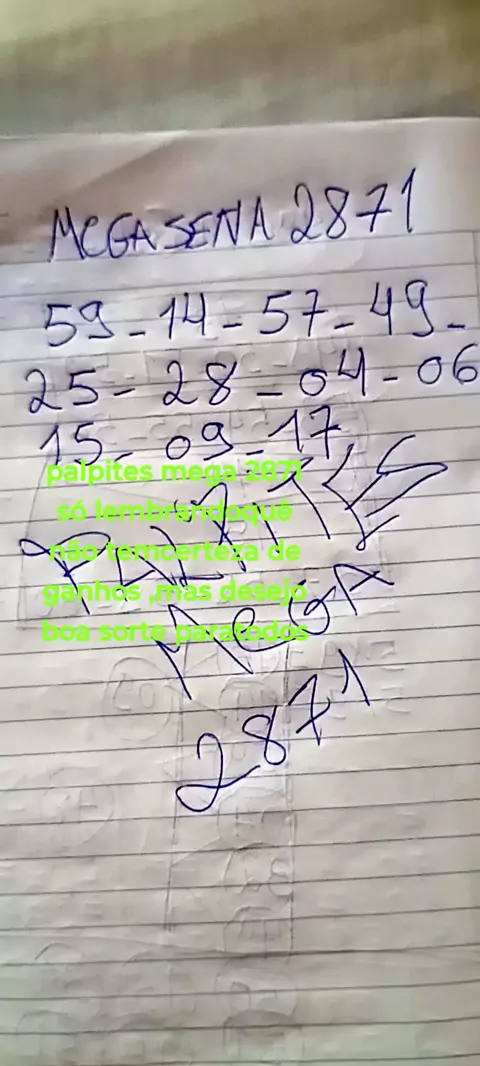 MEGASENA 2871
59-14-57-49-
25-28-04-06
15-09-17
palpites mega 2871
só lembrandoque
não temcerteza de
ganhos ,mas desejo
boa sorte paratodos
PALPITES
MEGA
2871